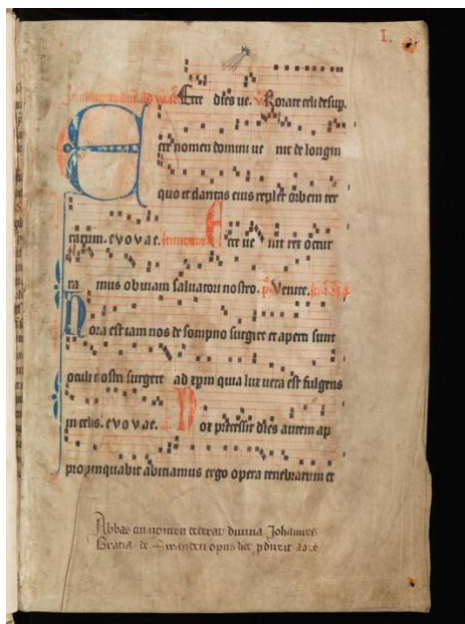 I.
Ecce dies ve. Rorate celi desup.
cce nomen domini ve nit de longin
quo et claritas eius replet orbem ter
rarum. evovae. E cce ve nit rex occur
ra mus obviam salvatori nostro. Venite.
Hora est iam nos de sompno surgere et aperti sunt
oculi nostri surgere ad xpm quia lux vera est fulgens
in celis. evovae. N ox precessit dies autem ap
propinquabit abiciamus ergo opera tenebrarum et
Abbas cui nomen dederat divina Johannes
Gratia de Swanden opus hec pduxit